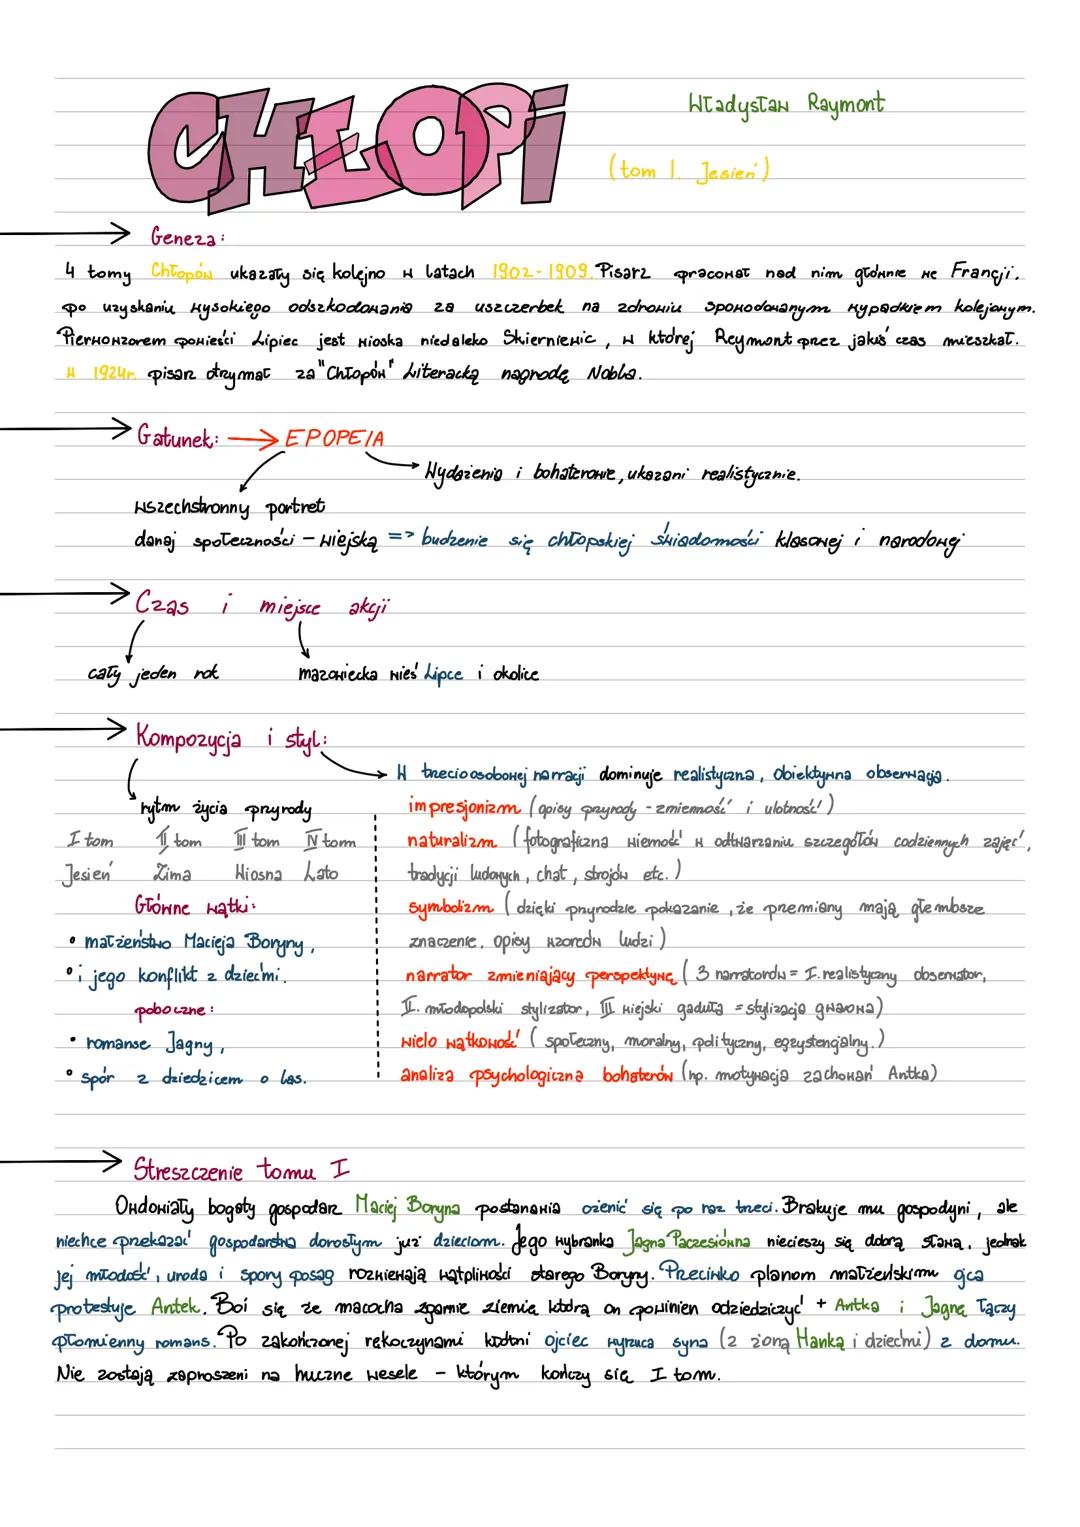 CHŁOPi
Władysław Raymont
(tom I. Jesień)
Geneza:
4 tomy Chłopów ukazały się kolejno w latach 1902-1909. Pisarz pracował nad nim głównie we Francji.
po uzyskaniu wysokiego odszkodowania za uszczerbek na zdrowiu spowodowanym wypadkiem kolejowym.
Pierwowzorem powieści Lipiec jest wioska niedaleko Skierniewic, w której Reymont przez jakiś czas mieszkał.
W 1924r. pisarz otrzymał za "Chłopów" Literacką nagrodę Nobla.
Gatunek: → EPOPEJA
Wydarzenia i bohaterowie, ukazani realistycznie.
wszechstronny portret
danej społeczności – wiejską => budzenie się chłopskiej świadomości klasowej i narodowej
Czas i miejsce akcji
cały jeden rok
mazowiecka wieś Lipce i okolice
Kompozycja i styl:
W trzecioosobowej narracji dominuje realistyczna, obiektywna obserwacja.
rytm życia przyrody
I tom II tom III tom IV tom
Jesień Zima Wiosna Lato
Główne wątki:
• małżeństwo Macieja Boryny,
• i jego konflikt z dziećmi.
poboczne:
• romanse Jagny,
• spór z dziedzicem o las.
impresjonizm (opisy przyrody - zmienność i ulotność)
naturalizm (fotograficzna wierność w odtwarzaniu szczegółów codziennych zajęć,
tradycji ludowych, chat, strojów etc.)
symbolizm (dzięki przyrodzie pokazanie, że przemiany mają głembsze
znaczenie, opisy wzorców ludzi)
narrator zmieniający perspektywę (3 narratorów = I. realistyczny obserwator,
II. młodopolski stylizator, III wiejski gaduła = stylizacja gwarowa)
wielo wątkowość (społeczny, moralny, polityczny, egzystencjalny.)
analiza psychologiczna bohaterów (np. motywacja zachowań Antka)
Streszczenie tomu I
Owdowiały bogaty gospodarz Maciej Boryna postanawia ożenić się po raz trzeci. Brakuje mu gospodyni, ale
niechce przekazać gospodarstwa dorosłym już dzieciom. Jego wybranka Jagna Paczesiówna niecieszy się dobrą sławą, jednak
jej młodość, uroda i spory posag rozwiewają wątpliwości starego Boryny. Przeciwko planom małżeńskim ojca
protestuje Antek. Boi się że macocha zgarnie ziemię którą on powinien odziedziczyć + Antka i Jagnę łączy
płomienny romans. Po zakończonej rękoczynami kłótni ojciec wyrzuca syna (z żoną Hanką i dziećmi) z domu.
Nie zostają zaproszeni na huczne wesele – którym kończy się I tom.